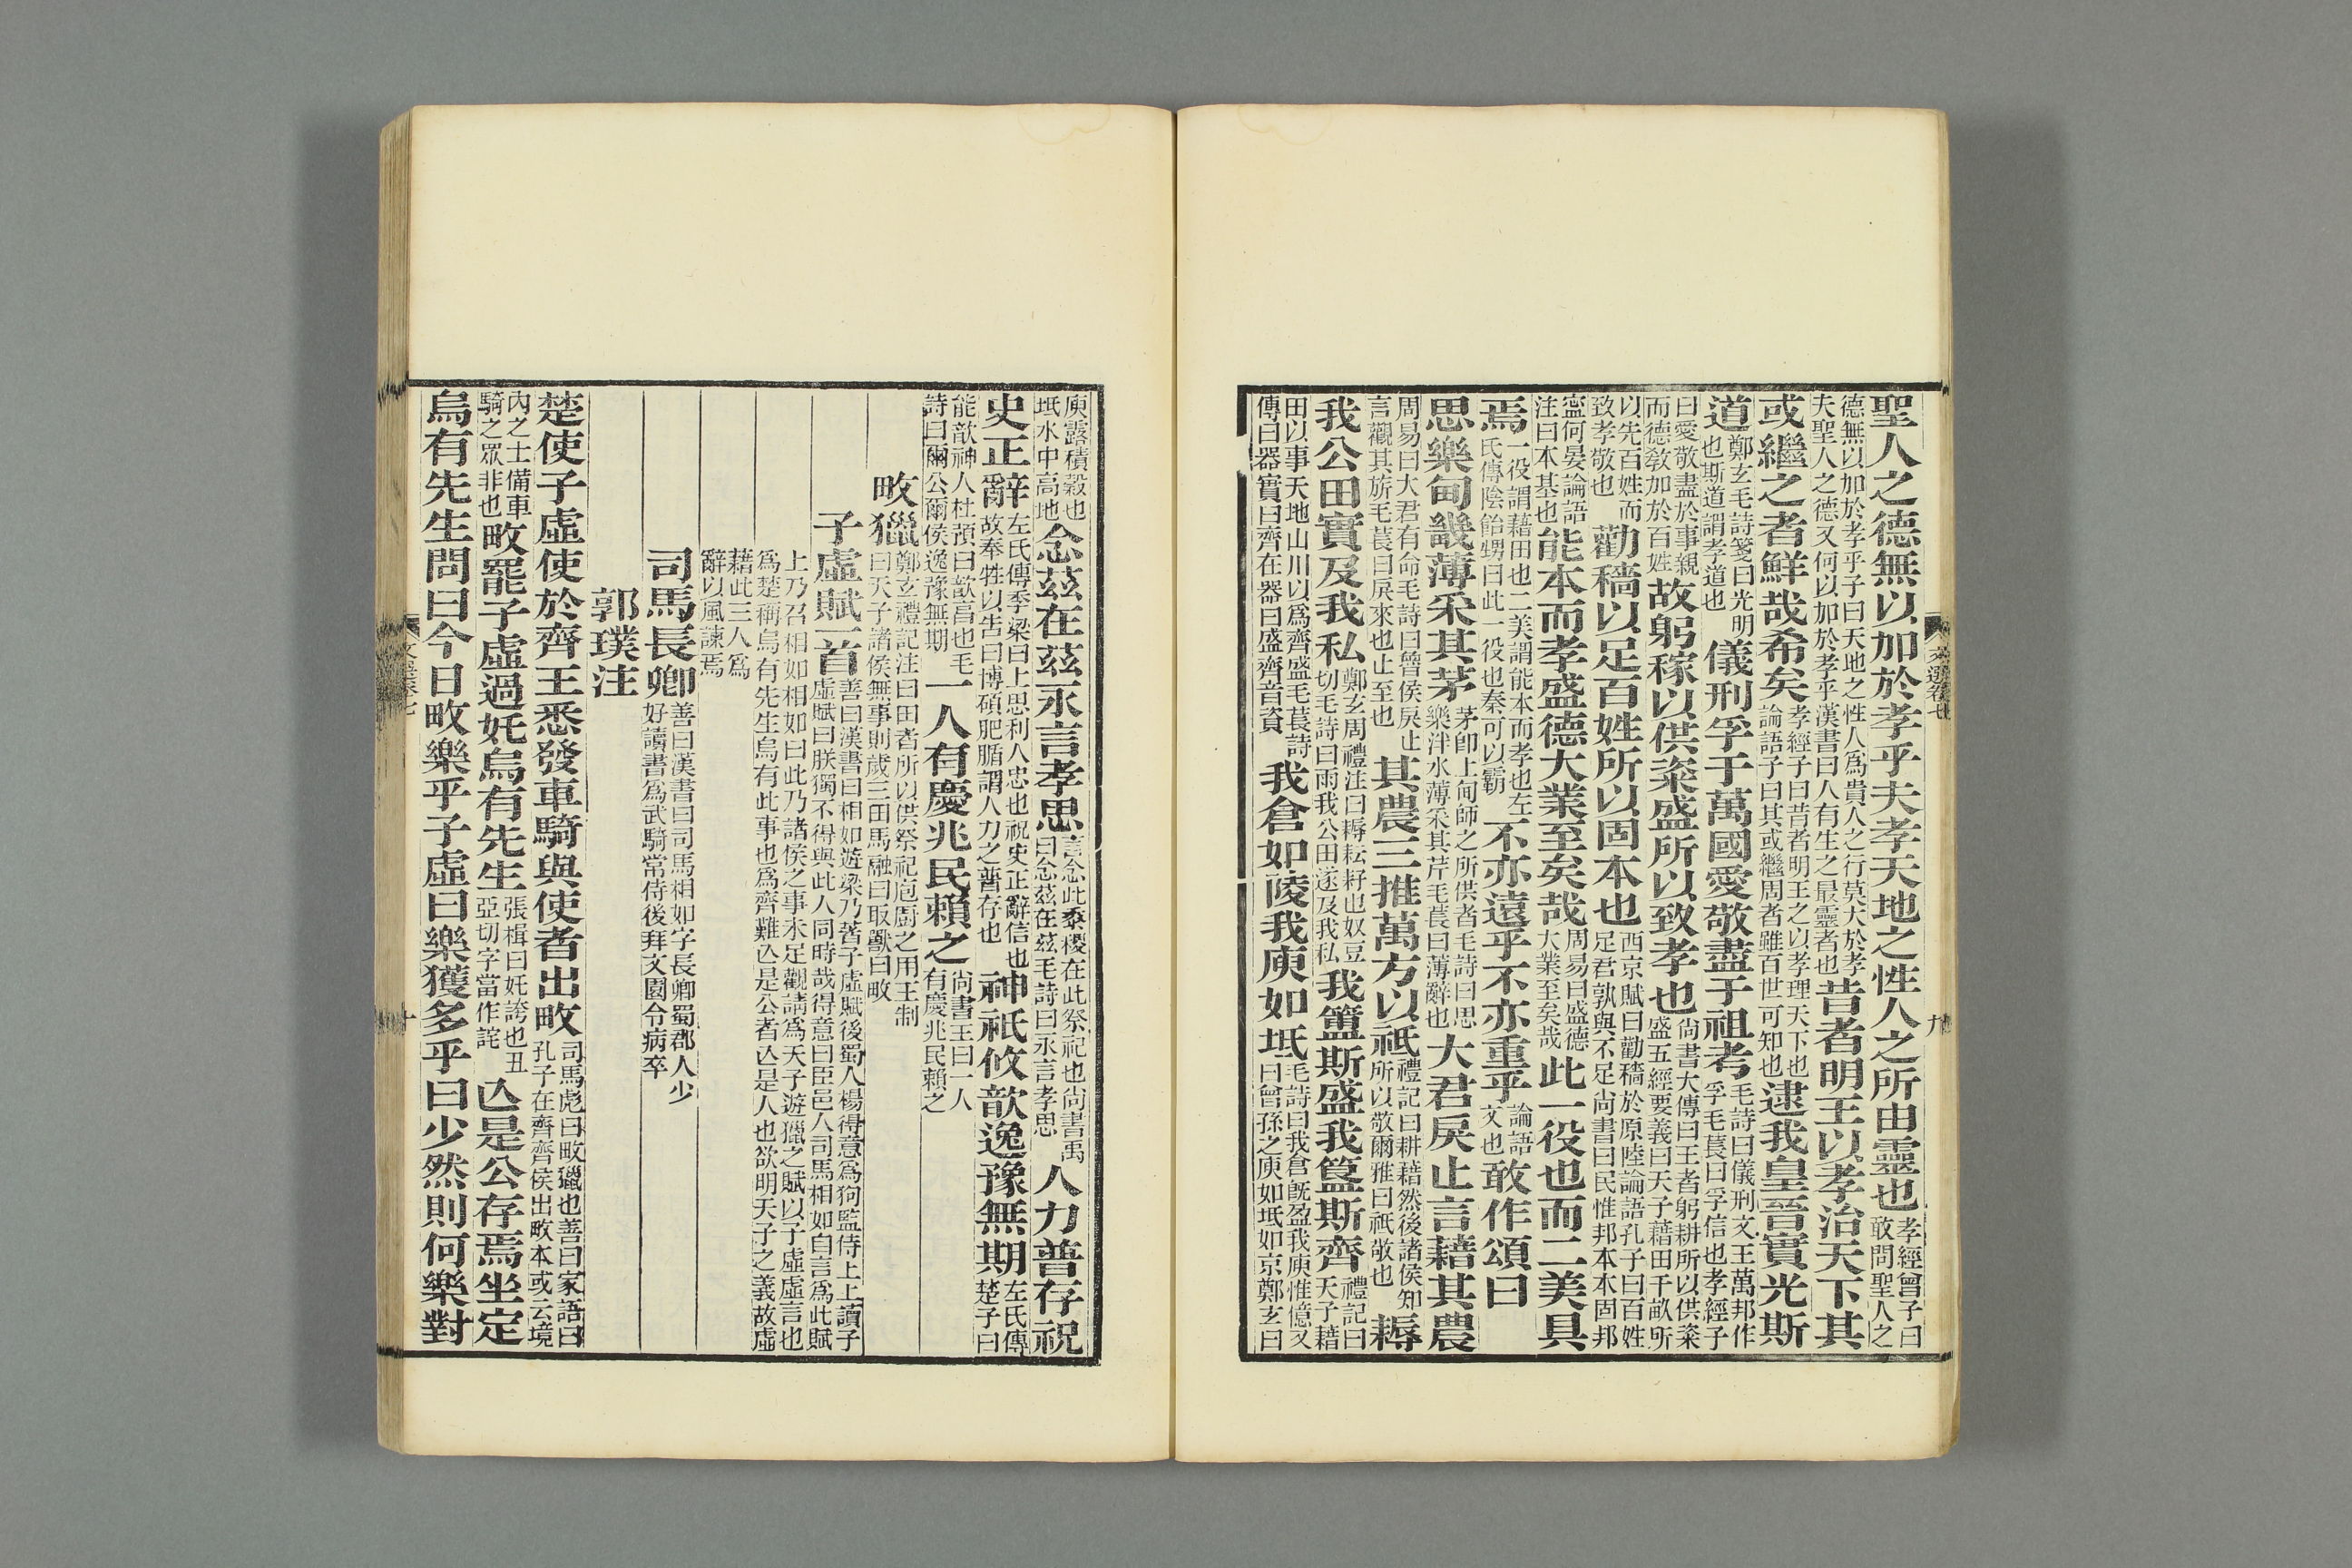 聖人之德無以加於孝乎夫孝天地之性人之所由靈也孝經曾子曰敢問聖人之
德無以加於孝乎子曰天地之性人爲貴人之行莫大於孝夫聖人之德又何以加於孝乎漢書曰人有生之最靈者也昔者明王以孝治天下其
或繼之者鮮哉希矣孝經子曰昔者明王之以孝理天下也論語子曰其或繼周者雖百世可知也逮我皇晉實光斯
道鄭玄毛詩箋曰光明也斯道謂孝道也儀刑孚于萬國愛敬盡于祖考毛詩曰儀刑文王萬邦作孚毛萇曰孚信也孝經子
曰愛敬盡於事親而德教加於百姓故躬稼以供粢盛所以致孝也尚書大傳曰王者躬耕所以供粢盛五經要義曰天子藉田千畝所
以先百姓而致孝敬也勸穡以足百姓所以固本也西京賦曰勸穡於原陸論語孔子曰百姓足君孰與不足尚書曰民惟邦本本固邦
寧何晏論語注曰本基也能本而孝盛德大業至矣哉周易曰盛德大業至矣哉此一役也而二美具
焉一役謂藉田也二美謂能本而孝也左氏傳陰飴甥曰此一役也秦可以霸不亦遠乎不亦重乎論語文也敢作頌曰
思樂甸畿薄采其茅茅卽上甸師之所供者毛詩曰思樂泮水薄采其芹毛萇曰薄辭也大君戾止言藉其農
周易曰大君有命毛詩曰魯侯戾止言觀其旂毛萇曰戾來也止至也其農三推萬方以祗禮記曰耕藉然後諸侯知所以敬爾雅曰祗敬也耨
我公田實及我私鄭玄周禮注曰耨耘耔也奴豆切毛詩曰雨我公田遂及我私我簠斯盛我簋斯齊禮記曰天子藉
田以事天地山川以爲齊盛毛萇詩傳曰器實曰齊在器曰盛齊音資我倉如陵我庾如坻毛詩曰我倉旣盈我庾惟億又曰曾孫之庾如坻如京鄭玄曰
文選卷七
九
庾露積穀也坻水中高地念茲在茲永言孝思言念此黍稷在此祭祀也尚書禹曰念茲在茲毛詩曰永言孝思人力普存祝
史正辭左氏傳季梁曰上思利人忠也祝史正辭信也故奉牲以告曰博碩肥腯謂人力之普存也神祇攸歆逸豫無期左氏傳楚子曰
能歆神人杜預曰歆享也毛詩曰爾公爾侯逸豫無期一人有慶兆民賴之尚書王曰一人有慶兆民賴之
畋獵鄭玄禮記注曰田者所以供祭祀庖廚之用王制曰天子諸侯無事則歲三田馬融曰取獸曰畋
子虛賦一首善曰漢書曰相如遊梁乃著子虛賦後蜀人楊得意爲狗監侍上上讀子虛賦曰朕獨不得與此人同時哉得意曰臣邑人司馬相如自言爲此賦
上乃召相如相如曰此乃諸侯之事未足觀請爲天子遊獵之賦以子虛虛言也爲楚稱烏有先生烏有此事也爲齊難亾是公者亾是人也欲明天子之義故虛
藉此三人爲辭以風諫焉
司馬長卿善曰漢書曰司馬相如字長卿蜀郡人少好讀書爲武騎常侍後拜文園令病卒
郭璞注
楚使子虛使於齊王悉發車騎與使者出畋司馬彪曰畋獵也善曰家語曰孔子在齊齊侯出畋本或云境
內之士備車騎之眾非也畋罷子虛過奼烏有先生張楫曰奼誇也丑亞切字當作詫亾是公存焉坐定
烏有先生問曰今日畋樂乎子虛曰樂獲多乎曰少然則何樂對
文選卷七
十